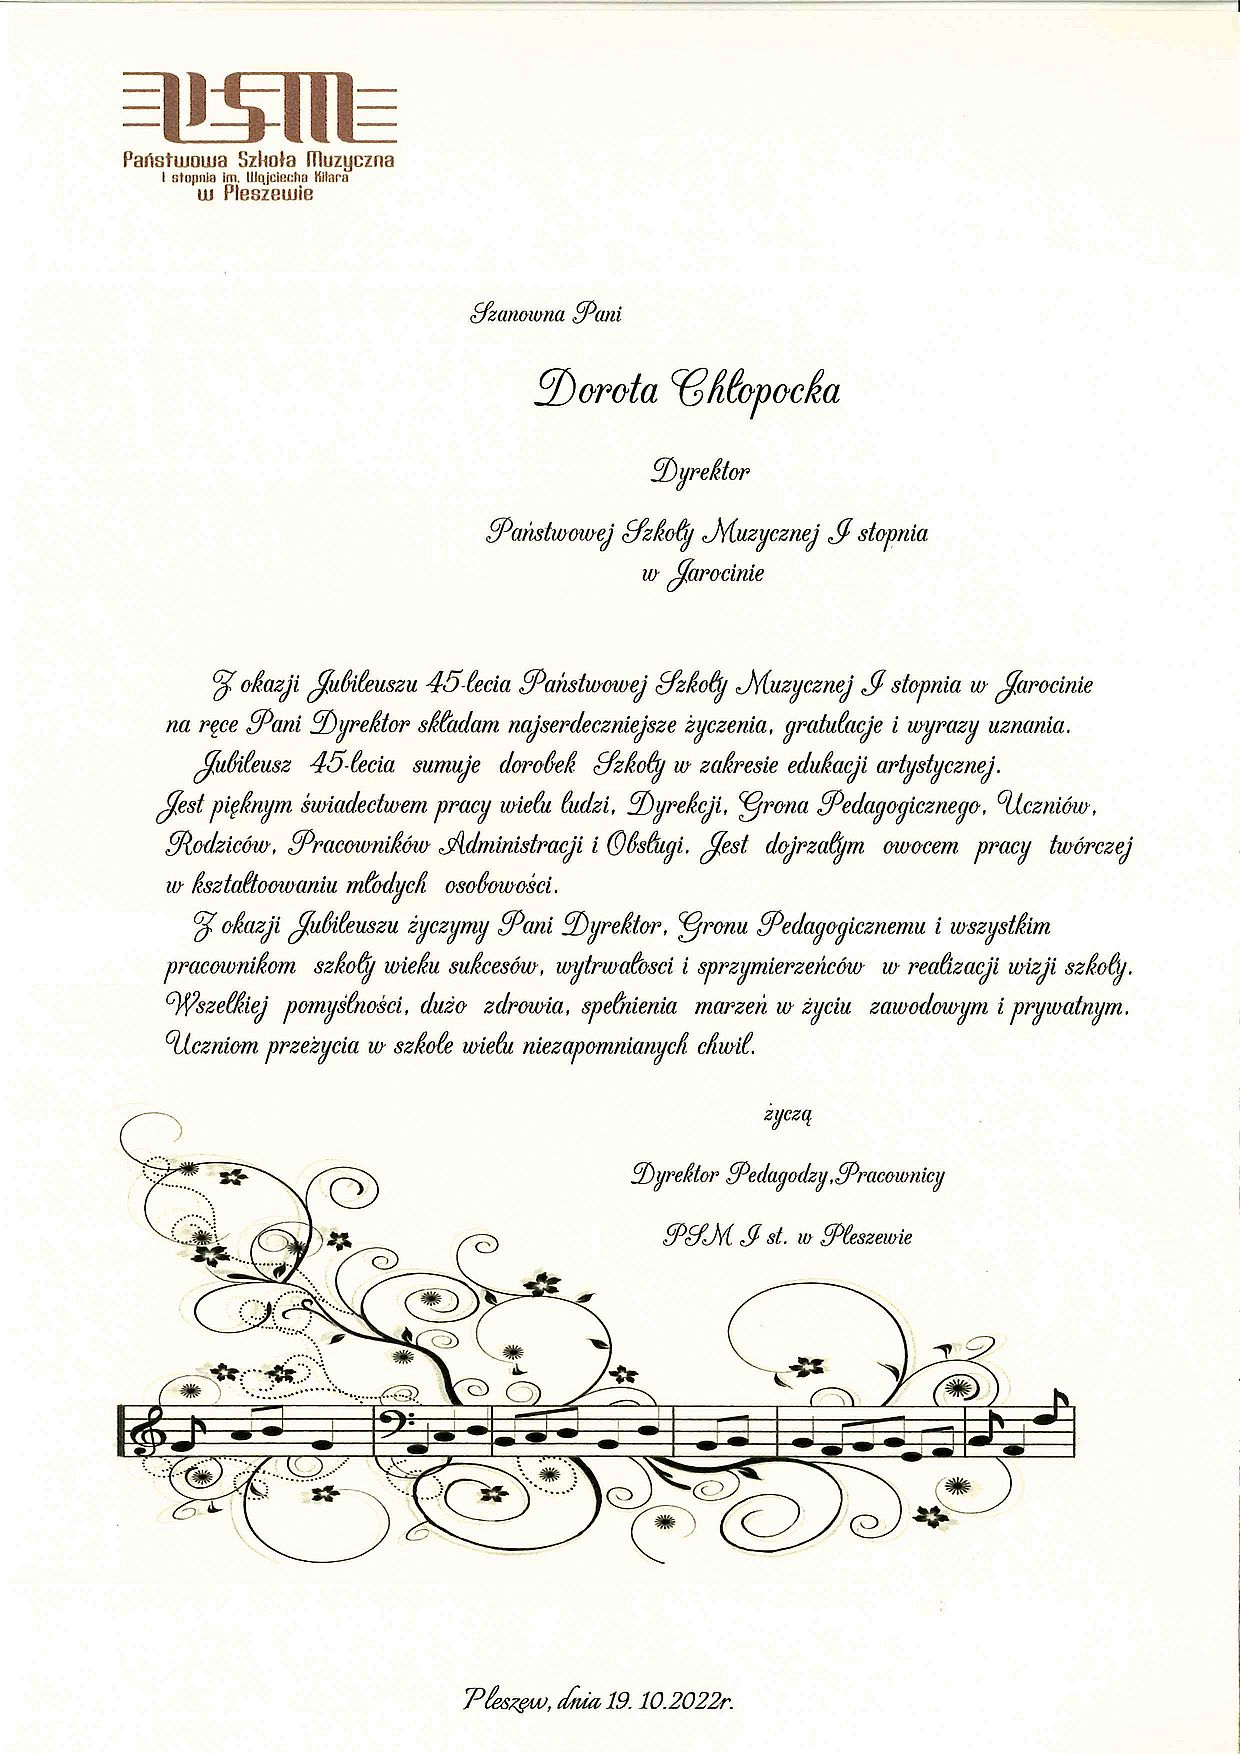 PSM
Państwowa Szkoła Muzyczna
I stopnia im. Wojciecha Kilara
w Pleszewie
Szanowna Pani
Dorota Chłopocka
Dyrektor
Państwowej Szkoły Muzycznej I stopnia
w Jarocinie
Z okazji Jubileuszu 45-lecia Państwowej Szkoły Muzycznej I stopnia w Jarocinie
na ręce Pani Dyrektor składam najserdeczniejsze życzenia, gratulacje i wyrazy uznania.
Jubileusz 45-lecia sumuje dorobek Szkoły w zakresie edukacji artystycznej.
Jest pięknym świadectwem pracy wielu ludzi, Dyrekcji, Grona Pedagogicznego, Uczniów,
Rodziców, Pracowników Administracji i Obsługi. Jest dojrzałym owocem pracy twórczej
w kształtoowaniu młodych osobowości.
Z okazji Jubileuszu życzymy Pani Dyrektor, Gronu Pedagogicznemu i wszystkim
pracownikom szkoły wieku sukcesów, wytrwałosci i sprzymierzeńców w realizacji wizji szkoły.
Wszelkiej pomyślności, dużo zdrowia, spełnienia marzeń w życiu zawodowym i prywatnym.
Uczniom przeżycia w szkole wielu niezapomnianych chwil.
życzą
Dyrektor Pedagodzy,Pracownicy
PSM I st. w Pleszewie
Pleszew, dnia 19. 10.2022r.